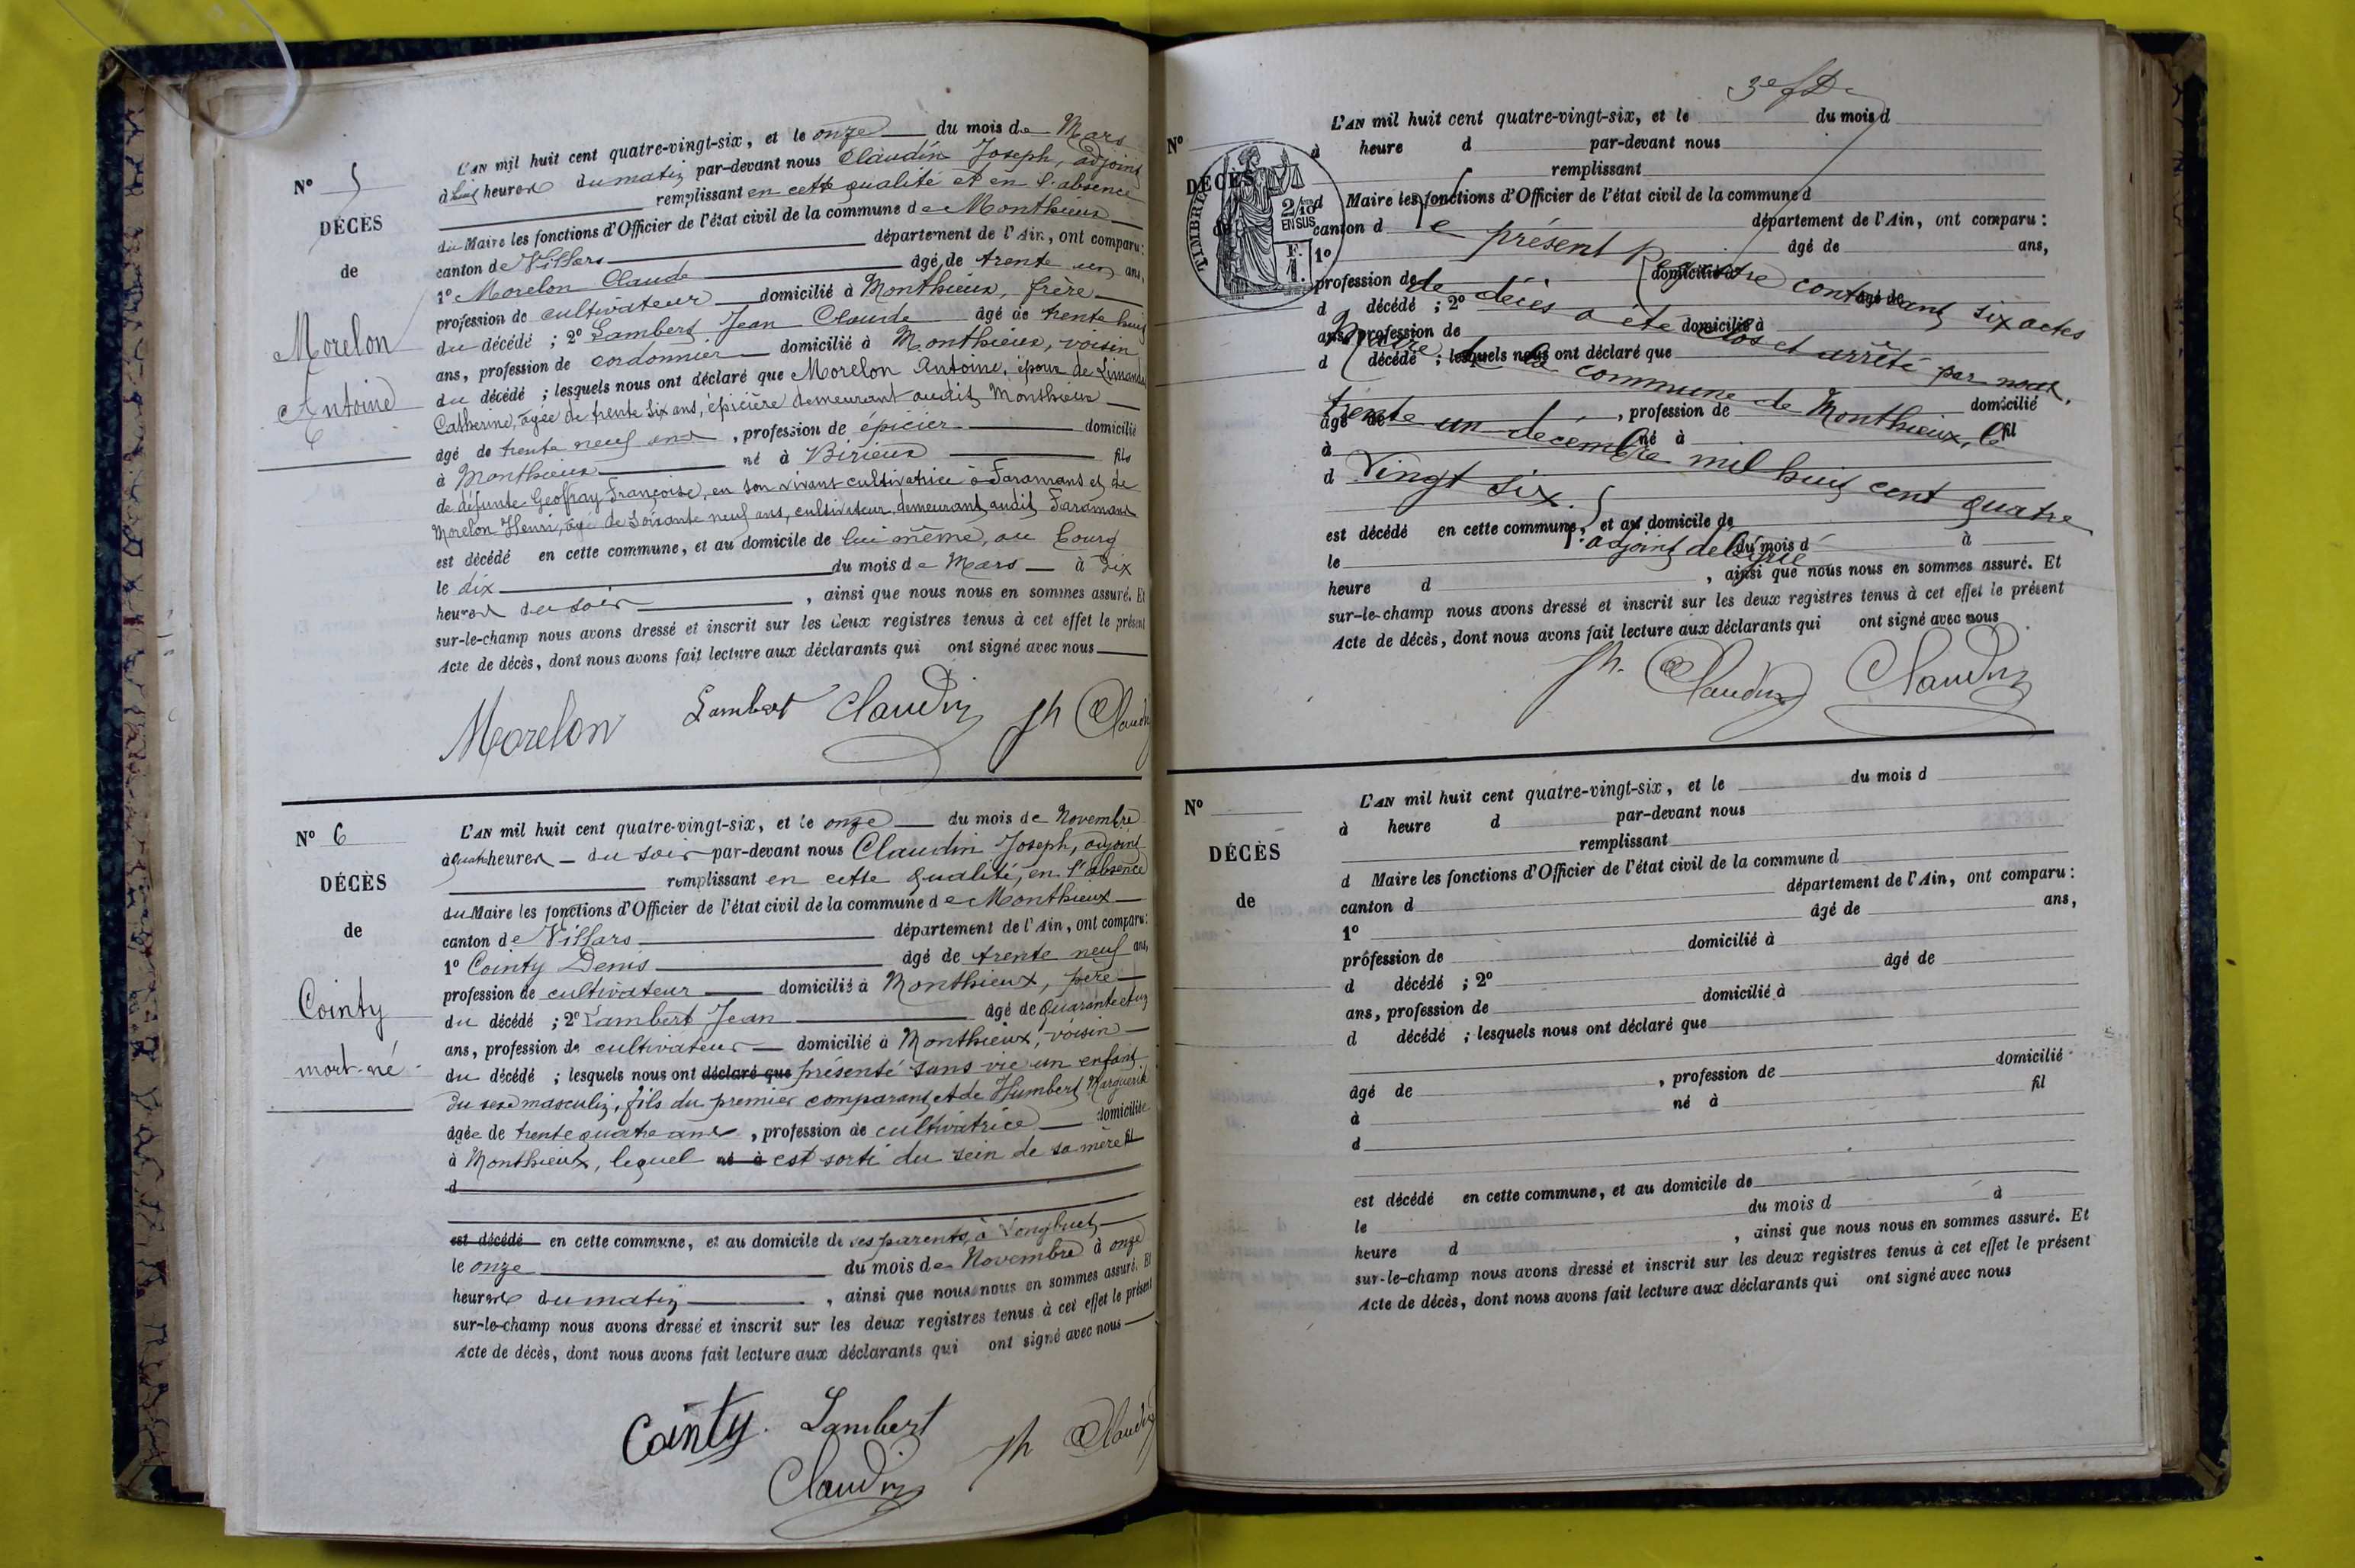 L'AN mil huit cent quatre-vingt-six, et le onze du mois de Mars
à huit heures du matin par-devant nous Claudin Joseph, adjoint
remplissant en cette qualité et en l'absence
N° 5
DÉCÈS
de
Morelon
Antoine
du Maire les fonctions d'Officier de l'état civil de la commune de Monthieux
canton de Villars département de l'Ain, ont comparu:
1° Morelon Claude âgé de trente un ans,
profession de cultivateur domicilié à Monthieux, frère
du décédé ; 2° Lambert Jean Claude âgé de trente huit
ans, profession de cordonnier domicilié à Monthieux, voisin
du décédé ; lesquels nous ont déclaré que Morelon Antoine, époux de
Catherine, âgée de trente six ans, épicière demeurant audit Monthieux
âgé de trente neuf ans, profession de épicier domicilié
à Monthieux né à Birieux fils
de défunte Geoffray Françoise, en son vivant cultivatrice à Faramans et de
Morelon Henri, âgé de soixante neuf ans, cultivateur demeurant audit Faramans
est décédé en cette commune, et au domicile de lui même, au bourg
le dix du mois de Mars à dix
heures du soir, ainsi que nous nous en sommes assuré. Et
sur-le-champ nous avons dressé et inscrit sur les deux registres tenus à cet effet le présent
Acte de décès, dont nous avons fait lecture aux déclarants qui ont signé avec nous
Morelon Lambert Claudin Jh Claudin
N° 6
DÉCÈS
de
Cointy
mort-né
L'AN mil huit cent quatre-vingt-six, et le onze du mois de Novembre
à quatre heures du soir par-devant nous Claudin Joseph, adjoint
remplissant en cette qualité, en l'absence
du Maire les fonctions d'Officier de l'état civil de la commune de Monthieux
canton de Villars département de l'Ain, ont comparu:
1° Cointy Denis âgé de trente neuf ans,
profession de cultivateur domicilié à Monthieux, père
du décédé ; 2° Lambert Jean âgé de quarante et un
ans, profession de cultivateur domicilié à Monthieux, voisin
du décédé ; lesquels nous ont déclaré que présenté sans vie un enfant
du sexe masculin, fils du premier comparant et de Humbert Marguerite
âgée de trente quatre ans, profession de cultivatrice domiciliée
à Monthieux, lequel né à est sorti du sein de sa mère fil
d
est décédé en cette commune, et au domicile de ses parents, à
le onze du mois de Novembre à onze
heures du matin, ainsi que nous nous en sommes assuré. Et
sur-le-champ nous avons dressé et inscrit sur les deux registres tenus à cet effet le présent
Acte de décès, dont nous avons fait lecture aux déclarants qui ont signé avec nous
Cointy Lambert
Claudin Jh Claudin
L'AN mil huit cent quatre-vingt-six, et le du mois d
N° à heure d par-devant nous
remplissant
DÉCÈS
de
TIMBRE
2/10 EN SUS
F. 1.
d Maire les fonctions d'Officier de l'état civil de la commune d
canton d département de l'Ain, ont comparu :
1° âgé de ans,
profession de domicilié à
d décédé ; 2° âgé de
ans, profession de domicilié à
d décédé ; lesquels nous ont déclaré que
âgé de , profession de domicilié
à né à fil
d
est décédé en cette commune, et au domicile de
le du mois d à
heure d , ainsi que nous nous en sommes assuré. Et
sur-le-champ nous avons dressé et inscrit sur les deux registres tenus à cet effet le présent
Acte de décès, dont nous avons fait lecture aux déclarants qui ont signé avec nous
Le présent Registre contenant six actes
de décès a été clos et arrêté par nous,
de la commune de Monthieux, le
trente un décembre mil huit cent quatre
Vingt six.
adjoint délégué
Jh. Claudin Claudin
L'AN mil huit cent quatre-vingt-six, et le du mois d
N° à heure d par-devant nous
remplissant
DÉCÈS
de
d Maire les fonctions d'Officier de l'état civil de la commune d
canton d département de l'Ain, ont comparu :
1° âgé de ans,
profession de domicilié à
d décédé ; 2° âgé de
ans, profession de domicilié à
d décédé ; lesquels nous ont déclaré que
âgé de , profession de domicilié
à né à fil
d
est décédé en cette commune, et au domicile de
le du mois d à
heure d , ainsi que nous nous en sommes assuré. Et
sur-le-champ nous avons dressé et inscrit sur les deux registres tenus à cet effet le présent
Acte de décès, dont nous avons fait lecture aux déclarants qui ont signé avec nous